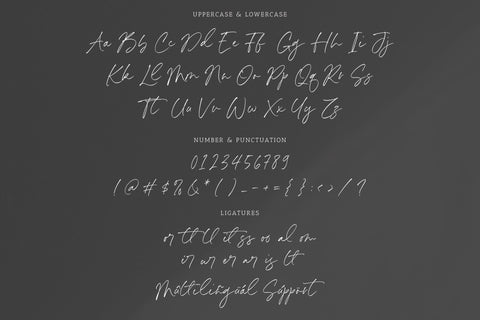 UPPERCASE & LOWERCASE
Aa Bb Cc Dd Ee Ff Gg Hh Ii Jj
Kk Ll Mm Nn Oo Pp Qq Rr Ss
Tt Uu Vv Ww Xx Yy Zz
NUMBER & PUNCTUATION
0123456789
! @ # $ % & * ( ) _ - + = { } : < > / ?
LIGATURES
or tt ll it ss oo al om
ir ur er ar is lt
Mültilingüál Süppört